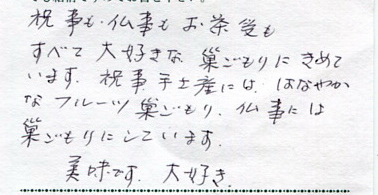 祝事も、仏事も お茶受も
すべて 大好きな 巣ごもりに きめて
います. 祝事 手土産には はなやか
な フルーツ 巣ごもり. 仏事には
巣ごもりにしています.
美味です. 大好き.